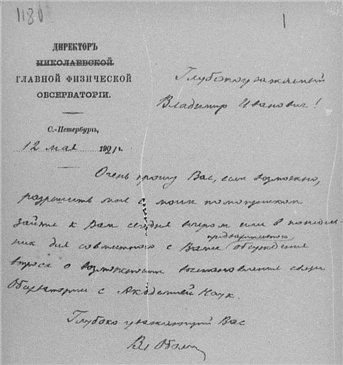 1180
1
ДИРЕКТОРЪ
НИКОЛАЕВСКОЙ
ГЛАВНОЙ ФИЗИЧЕСКОЙ
ОБСЕРВАТОРІИ.
С.-Петербургъ,
12 мая 1921 г.
Глубокоуважаемый
Владимир Иванович!
Очень прошу Вас, если возможно,
разрешить мне с моим помощником
зайти к Вам сегодня вечером или в понедель-
ник для совместного с Вами предварительного обсуждения
вопроса о возможности восстановления связи
Обсерватории с Академией Наук.
Глубоко уважающий Вас